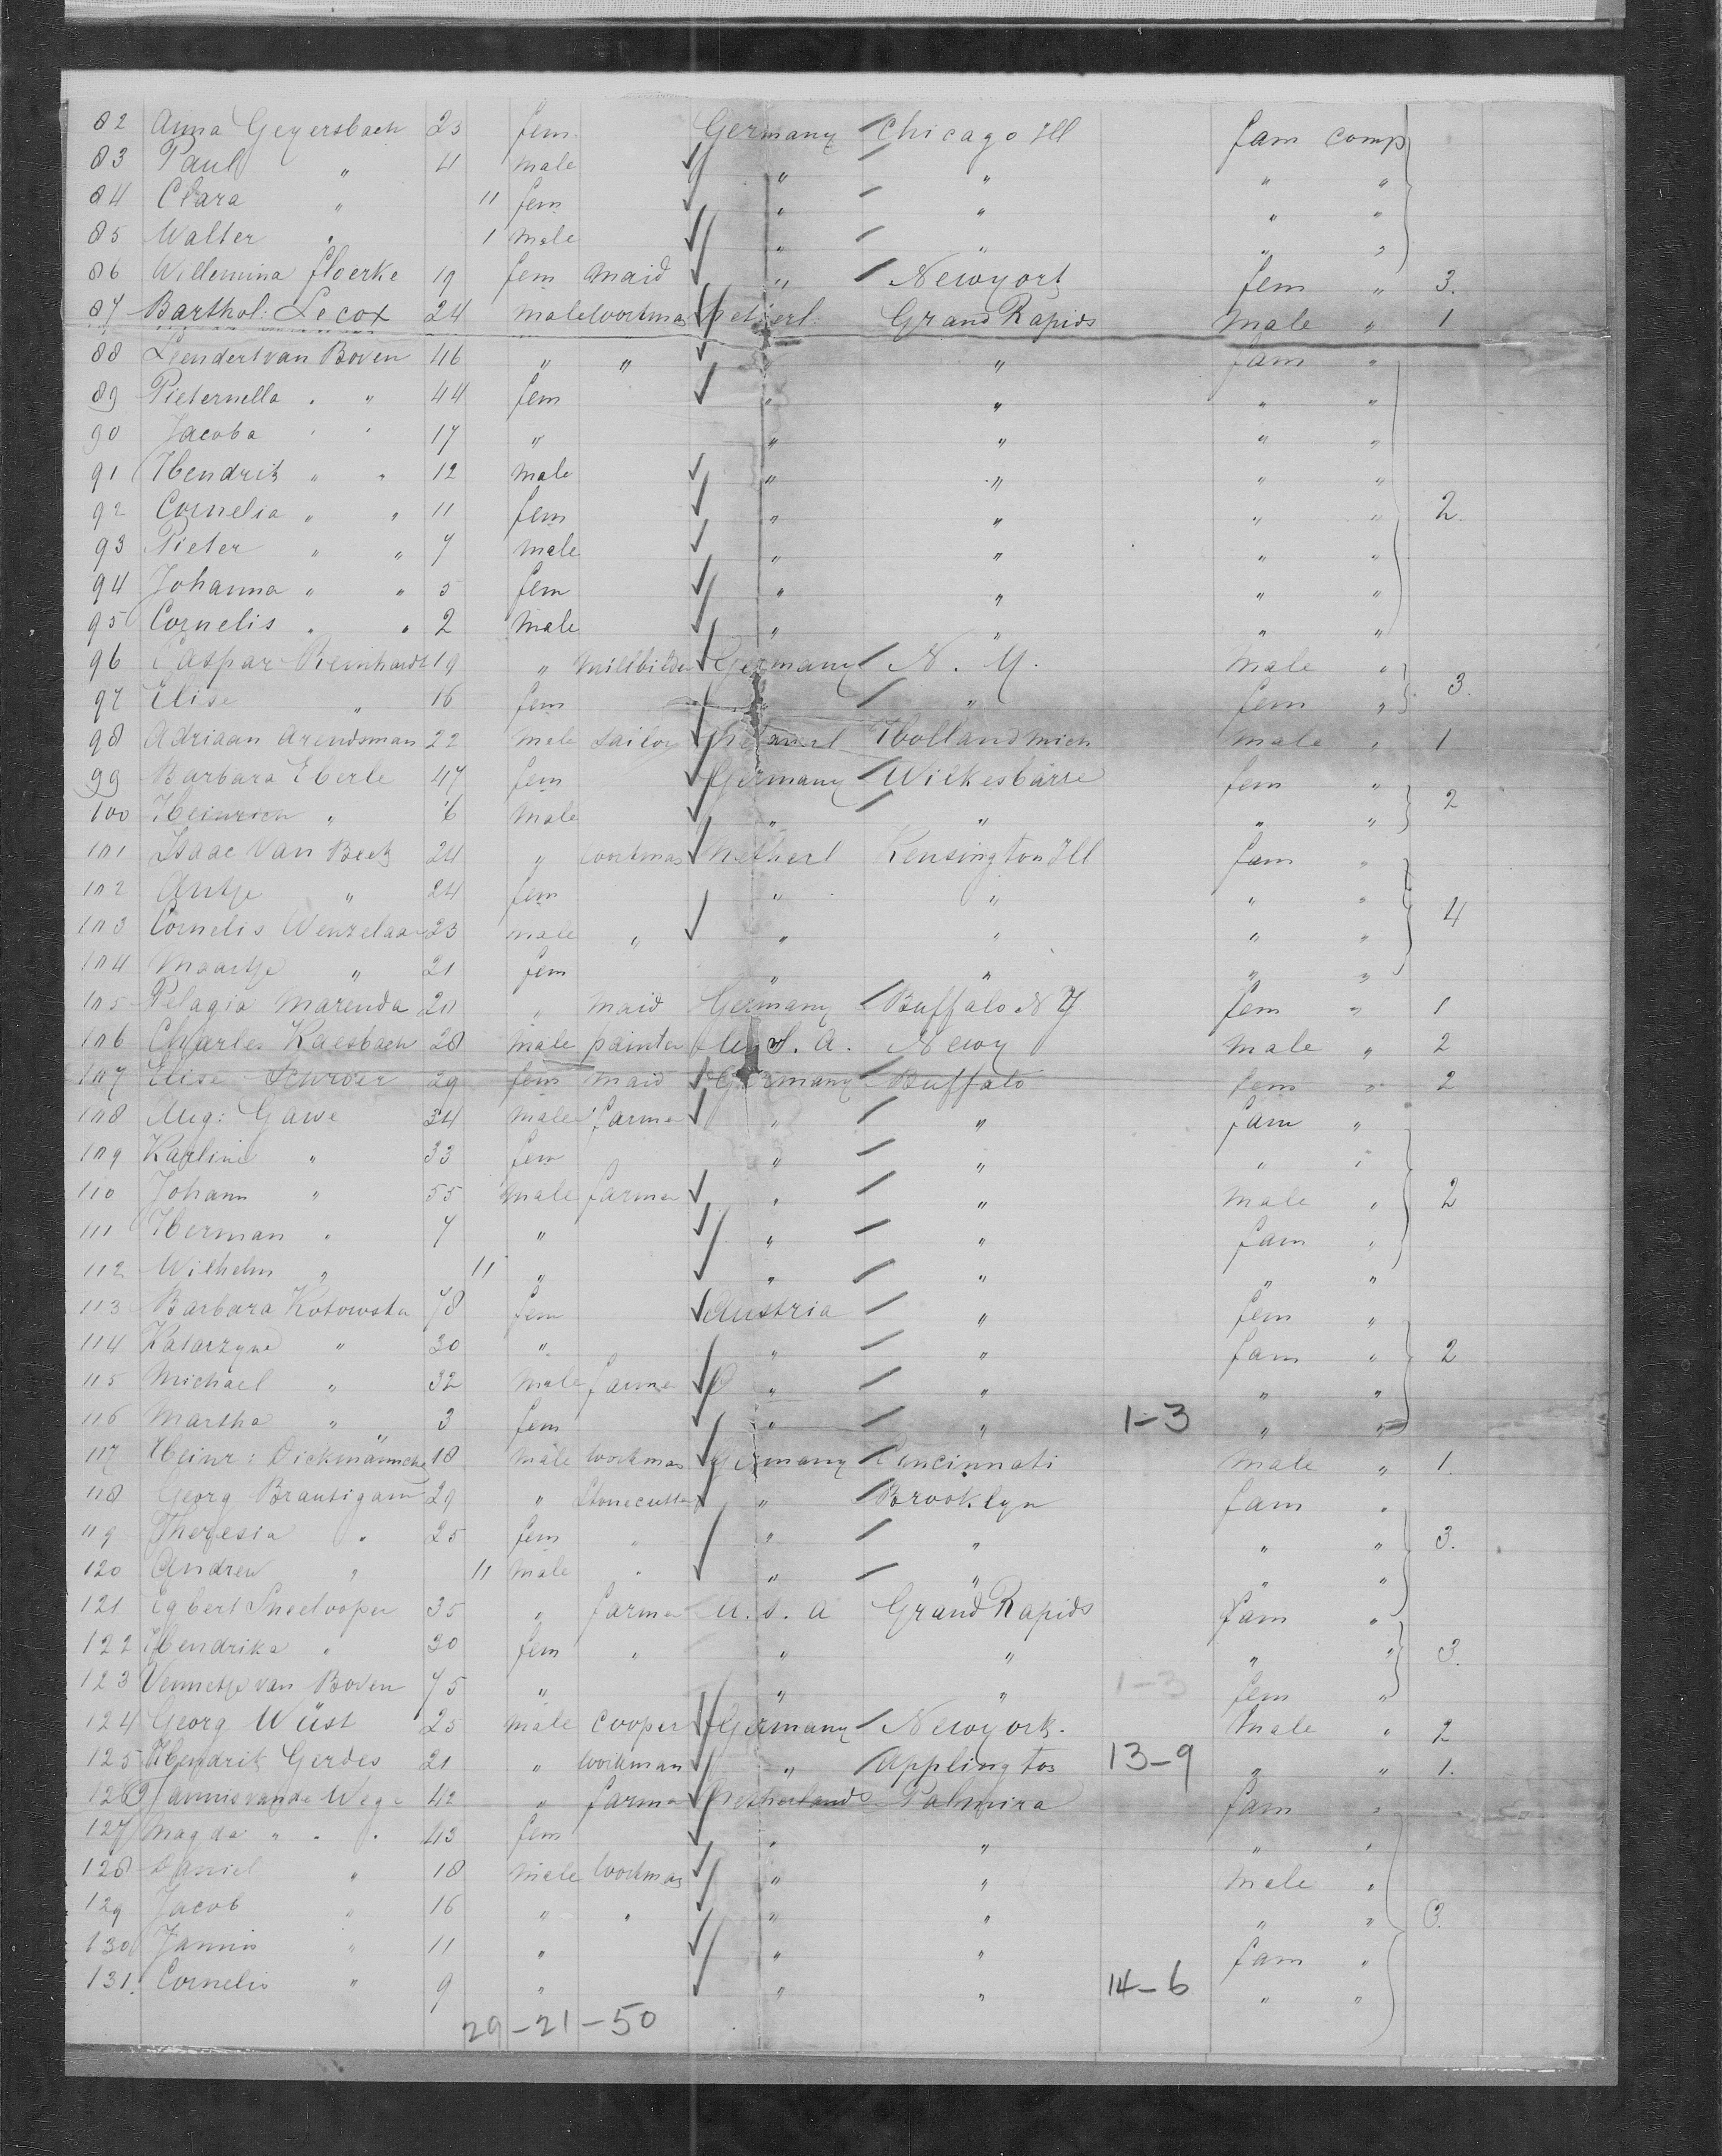 82 Anna Geyersbach 23 fem. Germany Chicago Ill fam comp
83 Paul " 4 male " " " "
84 Clara " 11 fem " " " "
85 Walter " 1 male " " " "
86 Willemina floerke 19 fem maid " Newyork fem " 3.
87 Barthol: Lecox 24 male workman Netherl. Grand Rapids male " 1
88 Leendert van Boven 46 " " " " fam "
89 Pieternella " " 44 fem " " " "
90 Jacoba " " 17 " " " " "
91 Hendrik " " 12 male " " " "
92 Cornelia " " 11 fem " " " " 2.
93 Pieter " " 7 male " " " "
94 Johanna " " 5 fem " " " "
95 Cornelis " " 2 male " " " "
96 Caspar Reinhardt 19 " millbilder Germany N. Y. male "
97 Elise " 16 fem " " fem " 3.
98 Adriaan Arendsman 22 male sailor Netherl Holland Mich male " 1
99 Barbara Eberle 47 fem Germany Wilkesbarre fem "
100 Heinrich " 6 male " " " " 2
101 Isaac van Beek 24 " workman Netherl Kensington Ill fam "
102 Antje " 24 fem " " " "
103 Cornelis Wenzelaar 23 male " " " " " 4
104 Maartje " 21 fem " " " "
105 Pelagia Marenda 20 " maid Germany Buffalo N Y fem " 1
106 Charles Kaesbach 28 male painter U. S. A. Newy male " 2
107 Elise Schroer 29 fem maid Germany Buffalo fem " 2
108 Aug: Gawe 34 male farmer " " fam "
109 Karline " 33 fem " " " "
110 Johann " 55 male farmer " " male " 2
111 Herman " 7 " " " fam "
112 Wilhelm " 11 " " " " "
113 Barbara Kotowska 78 fem Austria " fem "
114 Katarzyna " 30 " " " fam " 2
115 Michael " 32 male farmer " " " "
116 Martha " 3 fem " " 1-3 " "
117 Heinr: Dickmännche 18 male workman Germany Cincinnati male " 1.
118 Georg Brautigam 29 " Stonecutter " Brooklyn fam "
119 Theresia " 25 fem " " " " " 3.
120 Andrew " 11 male " " " " "
121 Egbert Snoelooper 35 " farmer U. S. A Grand Rapids fam "
122 Hendrika " 30 fem " " " " " 3.
123 Vennetje van Boven 75 " " " 1-3 fem "
124 Georg Wüst 25 male cooper Germany Newyork. male " 2
125 Hendrik Gerdes 21 " workman " Applington 13-9 " " 1.
126 Jannis vande Wege 42 " farmer Netherlands Palmira fam "
127 Magda " " " 43 fem " " " "
128 Daniel " 18 male workman " " male "
129 Jacob " 16 " " " " " " 3.
130 Jannis " 11 " " " fam "
131. Cornelis " 9 " " " 14-6 " "
29-21-50